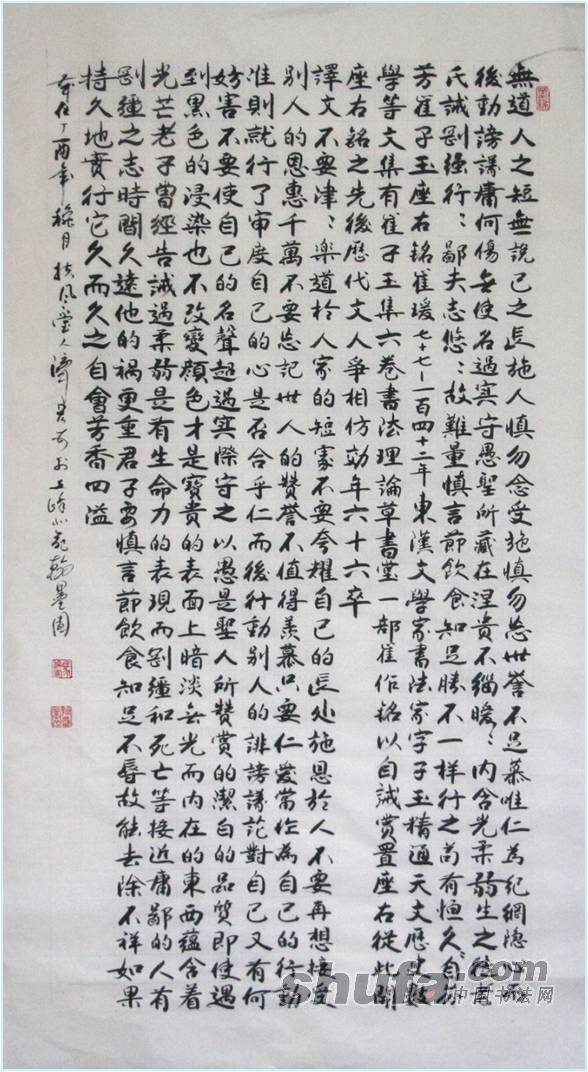 無道人之短無說己之長施人慎勿念受施慎勿忘世誉不足慕唯仁為紀綱隐心而
後動謗議庸何傷無使名過實守愚聖所藏在涅貴不缁暧〻內含光柔弱生之徒老
氏誡剛强行〻鄙夫志悠〻故難量慎言節飲食知足勝不一样行之苟有恒久自芬
芳崔子玉座右銘崔瑗七十七—一百四十二年東漢文學家書法家字子玉精通天文歷史數
學等文集有崔子玉集六卷書法理論草書埶一部崔作銘以自誡赏置座右從此開
座右銘之先後歷代文人爭相仿効年六十六卒
譯文不要津〻樂道於人家的短家不要夸耀自己的長处施恩於人不要再想接受
別人的恩惠千萬不要忘記世人的赞誉不值得羡慕只要仁爱常作為自己的行動
准則就行了审度自己的心是否合乎仁而後行動别人的誹謗議范對自己又有何
妨害不要使自己的名聲超過实際守之以愚是聖人所赞赏的潔白的品质即使遇
到黑色的浸染也不改變颜色才是寶貴的表面上暗淡無光而內在的東西蕴含着
光芒老子曾經告誡過柔弱是有生命力的表現而剛疆和死亡等接近庸鄙的人有
剛疆之志時間久遠他的祸更重君子要慎言節飲食知足不辱故能去除不祥如果
持久地實行它久而久之自會芳香四溢
歲在丁酉年 月扶風 人 翰墨園
shufa.com
中国书法网